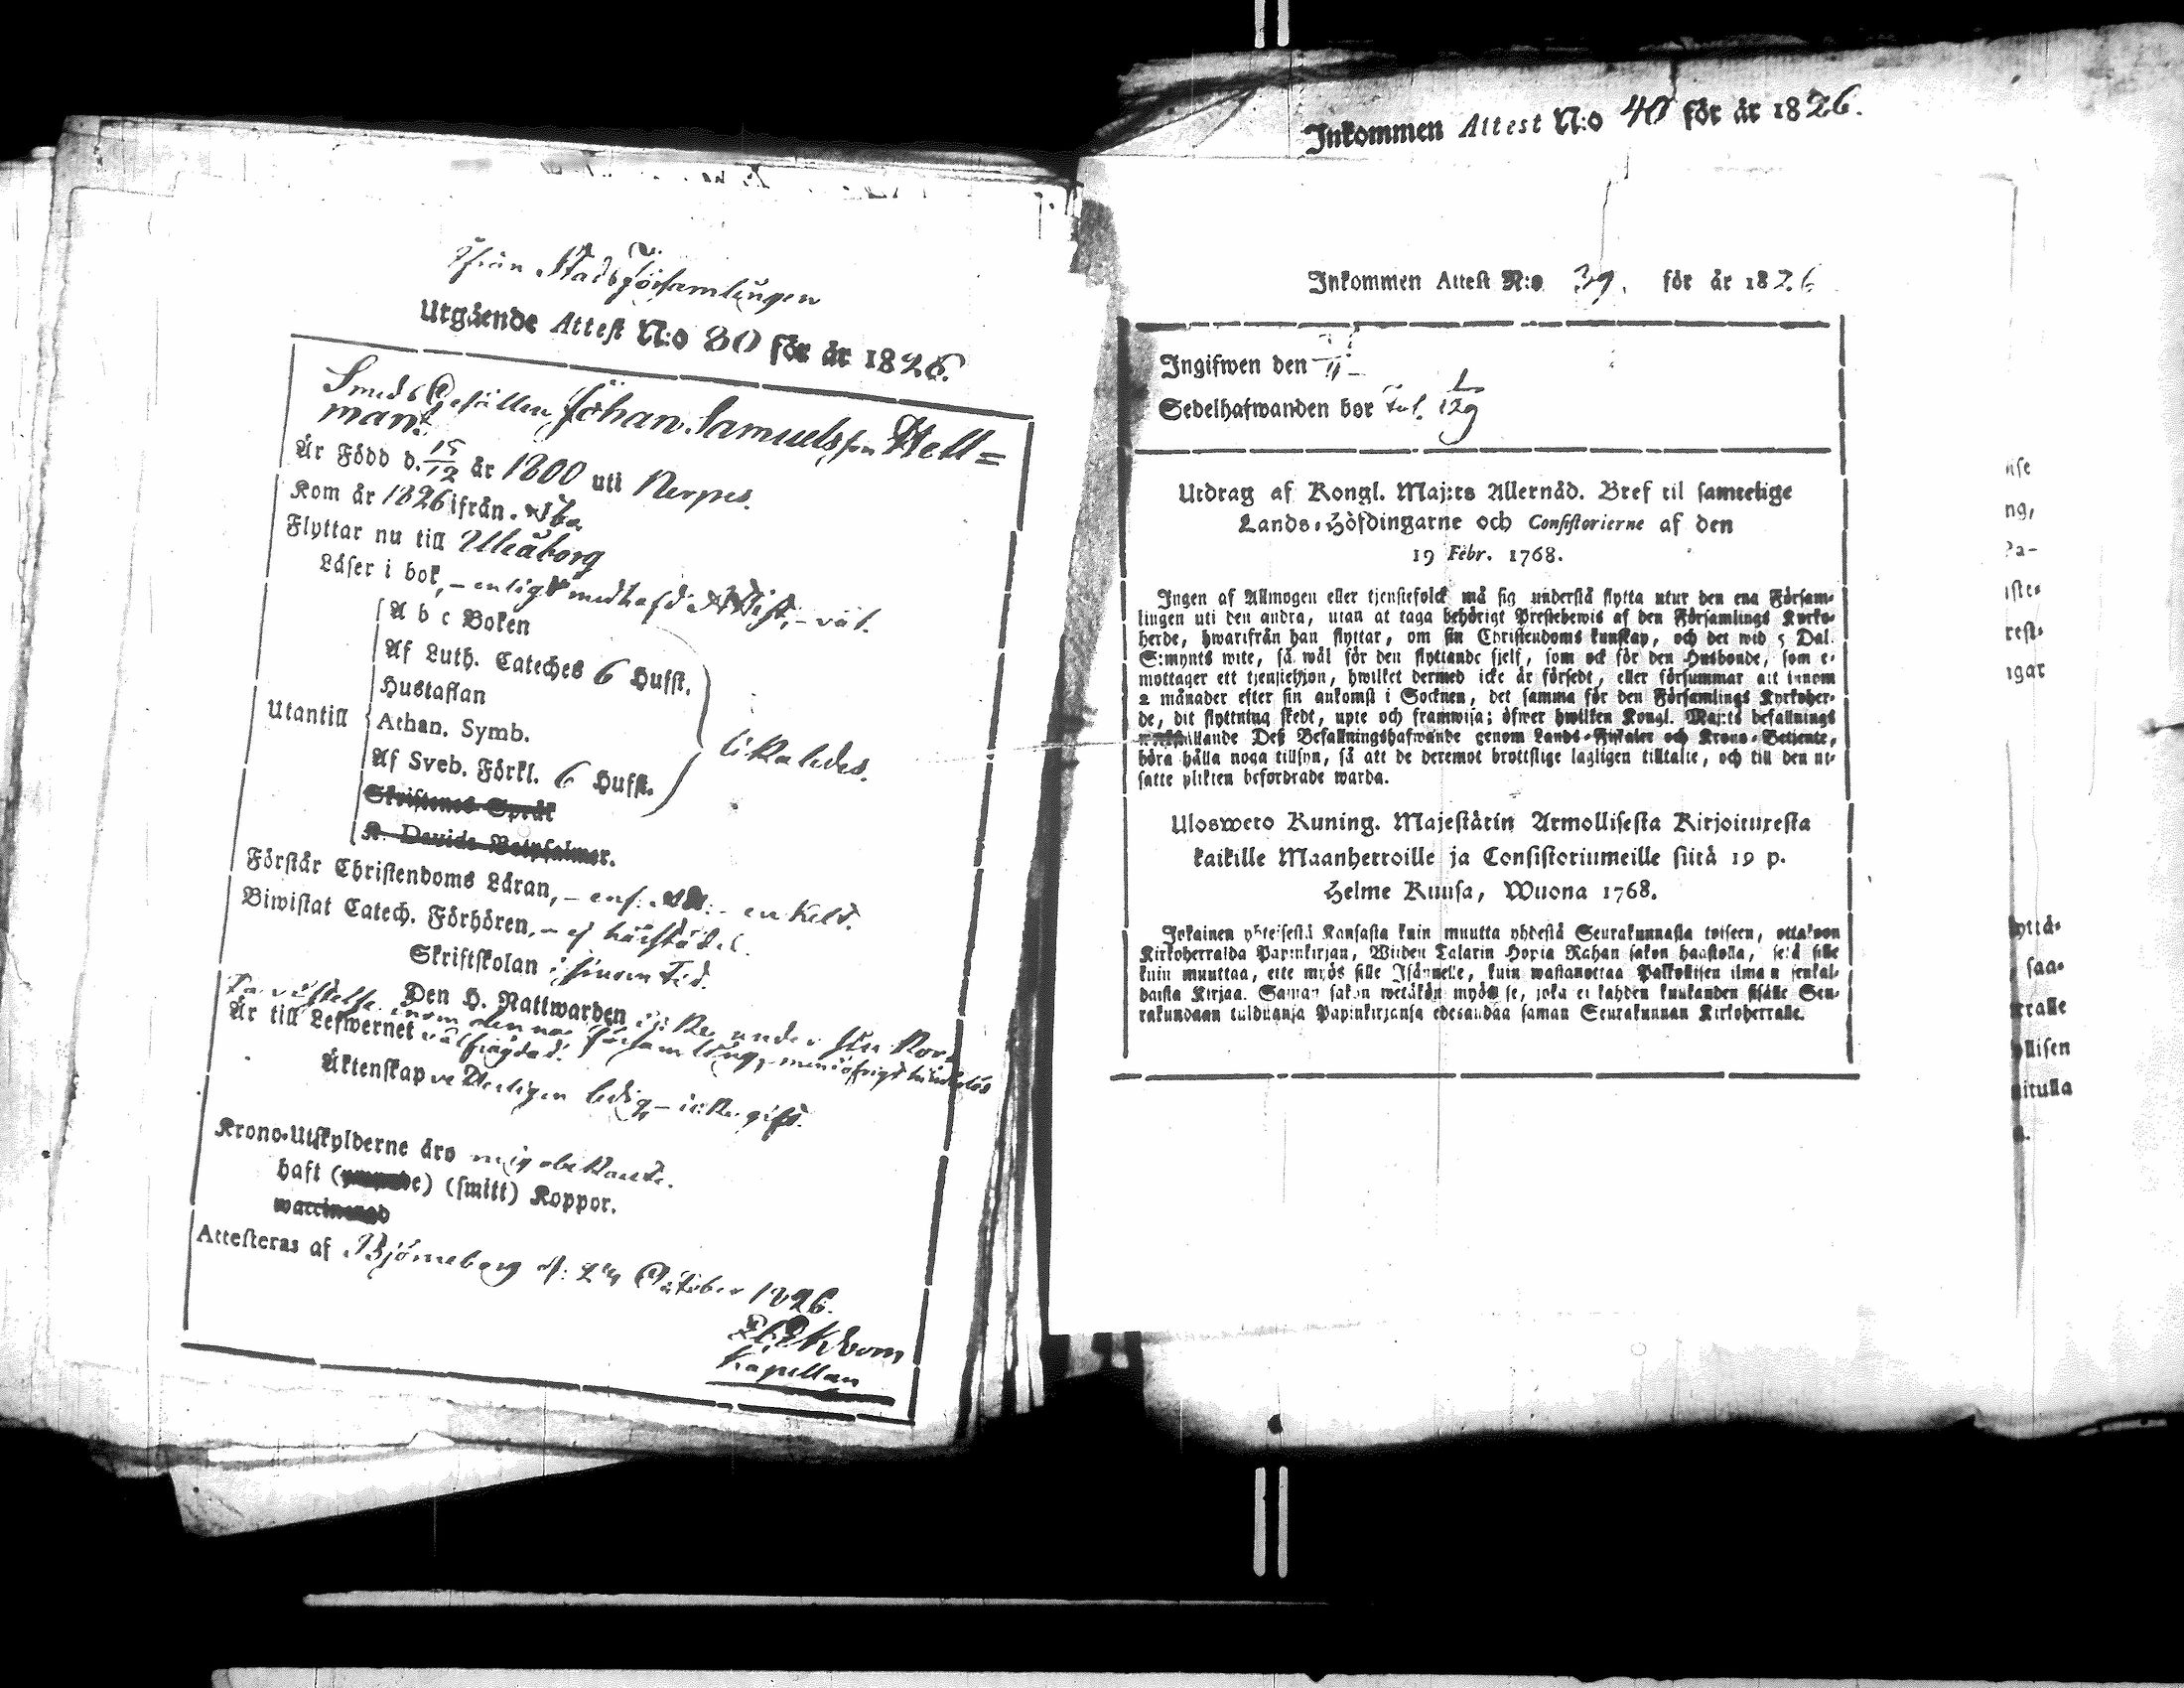 ifrån Stadsförsamlingen
Utgående Attest N:o 80 för år 1826.
Smeds Gesällen Johan Samuelsson Hell=
man
Är Född d. 15/12 år 1800 uti Nerpes.
Kom år 1826 ifrån Åbo
Flyttar nu till Uleåborg
Läser i bok, – enligt medhafd Attest, – väl.
A b c Boken
Af Luth. Cateches 6 Hufst.
Hustaflan
Utantill
Athan. Symb.
likaledes.
Af Sveb. Förkl. 6 Hufst.
Skriftenes Språk
K. Davids Botpsalmer.
Förstår Christendoms Läran, – enl. Att: enkelt.
Biwistat Catech. Förhören, – ej härstädes.
Skriftskolan i sinom tid.
Den H. Nattwarden icke under sin kor
ta vistelse inom denna församling, men öfrigt
Är till Lefwernet välfrägdad.
Äktenskap veterligen ledig – icke gift.
Krono-Utskylderne äro mig obekante.
haft (ympade) (smitt) Koppor.
waccinerad
Attesteras af Björneborg d: 24 October 1826.
Kapellan
Inkommen Attest N:o 40 för år 1826.
Inkommen Attest N:o 39. för år 1826
Ingifwen den
Sedelhafwanden bor fol. 1/129
Utdrag af Kongl. Maj:ts Allernåd. Bref til samtelige
Lands-Höfdingarne och Consistorierne af den
19 Febr. 1768.
Ingen af Allmogen eller tjenstefolck må sig understå flytta utur den ena Församlingen
lingen uti den andra, utan at taga behörigt Prestebewis af den Församlings Kyrko-
herde, hwarifrån han flyttar, om sin Christendoms kunskap, och det wid 5 Dal.
S:mynts wite, så wäl för den flyttande sjelf, som ock för den Husbonde, som e-
mottager ett tjenstehjon, hwilket dermed icke är försedt, eller försummar att innom
2 månader efter sin ankomst i Socknen, det samma för den Församlings Kyrkoher-
de, dit flyttning skedt, upte och framwisa; öfwer hwilken Kongl. Maj:ts befallnings
werkställande Deß Befallningshafwande genom Lands-Fiskaler och Krono-Betjente,
böra hålla noga tillsyn, så att de deremot brottslige lagligen tilltalte, och till den ut-
satte plikten befordrade warda.
Uloswero Kuning. Majestätin Armollisesta Kirjoituresta
kaikille Maanherroille ja Consistoriumeille siitä 19 p.
Helme Kuusa, Wuona 1768.
Jokainen yhteisestä Kansasta kuin muutta yhdestä Seurakunnasta toiseen, ottakoon
Kirkoherralda Papinkirjan, Wiiden Talarin Hopia Rahan sakon haastolla, sekä sille
kuin muuttaa, ette myös sille Isännelle, kuin wastanottaa Palkollisen ilman senkal-
daista Kirjaa. Saman sakon wetäkön myös se, joka ei kahden kuukauden sisälle Seu-
rakundaan tulduanja Papinkirjansa edesandaa saman Seurakunnan Kirkoherralle.
nse
ng,
Pa-
iste-
rest-
ngar
yttä-
saa-
rralle
llisen
situlla